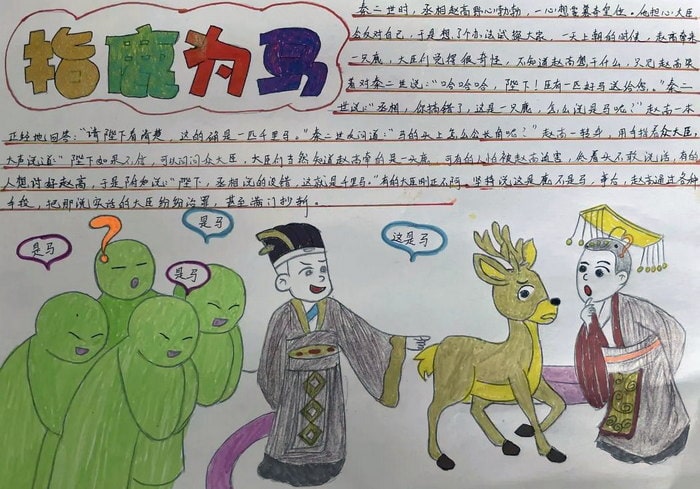 指鹿为马
秦二世时，丞相赵高野心勃勃，一心想要篡夺皇位。他担心大臣
会反对自己，于是想了个办法试探大家。一天上朝的时候，赵高牵来
一只鹿，大臣们觉得很奇怪，不知道赵高想干什么，只见赵高笑
着对秦二世说："哈哈哈，陛下！臣有一匹好马送给您。"秦二
世说："丞相，你搞错了，这是一只鹿，怎么说是马呢？"赵高一本
正经地回答："请陛下看清楚，这的确是一匹千里马。"秦二世反问道："马的头上怎么会长角呢？"赵高一转身，用手指着众大臣，
大声说道："陛下如果不信，可以问问众大臣，大臣们当然知道赵高带的是一头鹿，可有的人怕被赵高迫害，低着头不敢说话，有的
人想讨好赵高，于是附和说："陛下，丞相说的没错，这就是千里马。"有的大臣刚正不阿，坚持说这是鹿不是马，事后，赵高通过各种
手段，把那说实话的大臣纷纷治罪，甚至满门抄斩。
是马
是马
是马
这是马
?